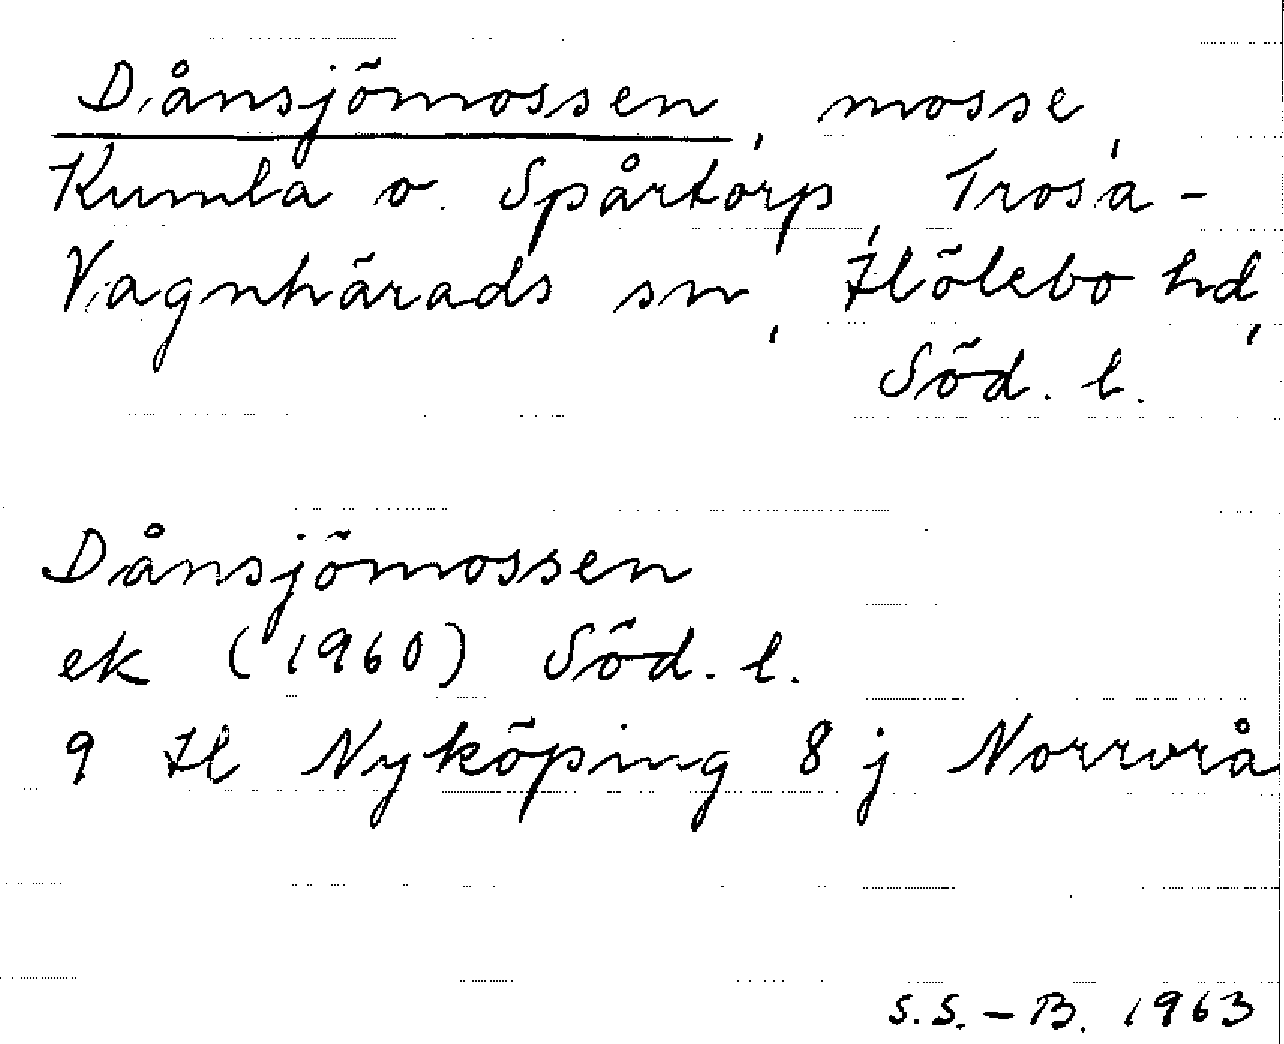 Dånsjömossen, mosse,
Kumla o. Spårtorp, Trosa-
Vagnhärads sn, Hölebo hd,
Söd. l.
Dånsjömossen
ek (1960) Söd. l.
9 H Nyköping 8 j Norrvrå
S.S.-B. 1963